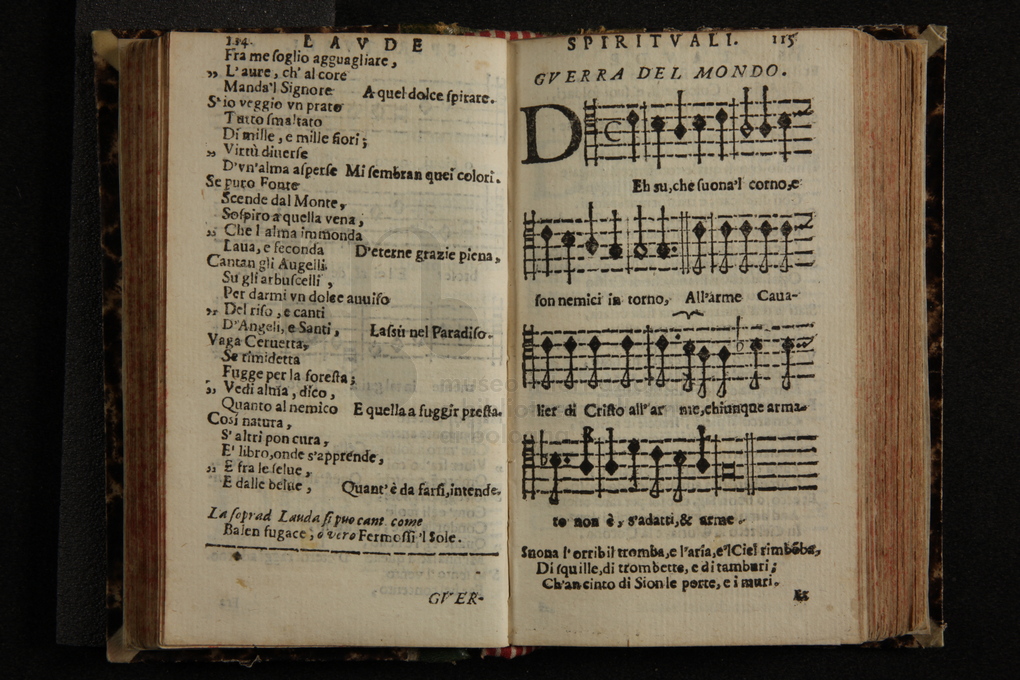 114. LAVDE
Fra me soglio agguagliare,
„ L'aure, ch'al core
Manda'l Signore A quel dolce spirare.
S'io veggio vn prato
Tutto smaltato
Di mille, e mille fiori;
„ Virtù diuerse
D'vn'alma asperse Mi sembran quei colori.
Se puro Fonte
Scende dal Monte,
Sospiro a quella vena,
„ Che l'alma immonda
Laua, e feconda D'eterne grazie piena,
Cantan gli Augelli
Su gli arbuscelli,
Per darmi vn dolce auuiso
„ Del riso, e canti
D'Angeli, e Santi, Lassù nel Paradiso.
Vaga Ceruetta,
Se timidetta
Fugge per la foresta;
„ Vedi alma, dico,
Quanto al nemico E quella a fuggir presta.
Così natura,
S'altri pon cura,
E' libro, onde s'apprende,
„ E fra le selue,
E dalle belue, Quant'è da farsi, intende.
La soprad. Lauda si puo cant. come
Balen fugace, o vero Fermossi 'l Sole.
GVER-
SPIRITVALI. 115
GVERRA DEL MONDO.
D
Eh su, che suona'l corno, e
son nemici in torno, All'arme Caua-
lier di Cristo all'ar me, chiunque arma-
to non è, s'adatti, & arme.
Suona l'orribil tromba, e l'aria, e'l Ciel rimbōba,
Di squille, di trombette, e di tamburi;
Ch'an cinto di Sion le porte, e i muri.